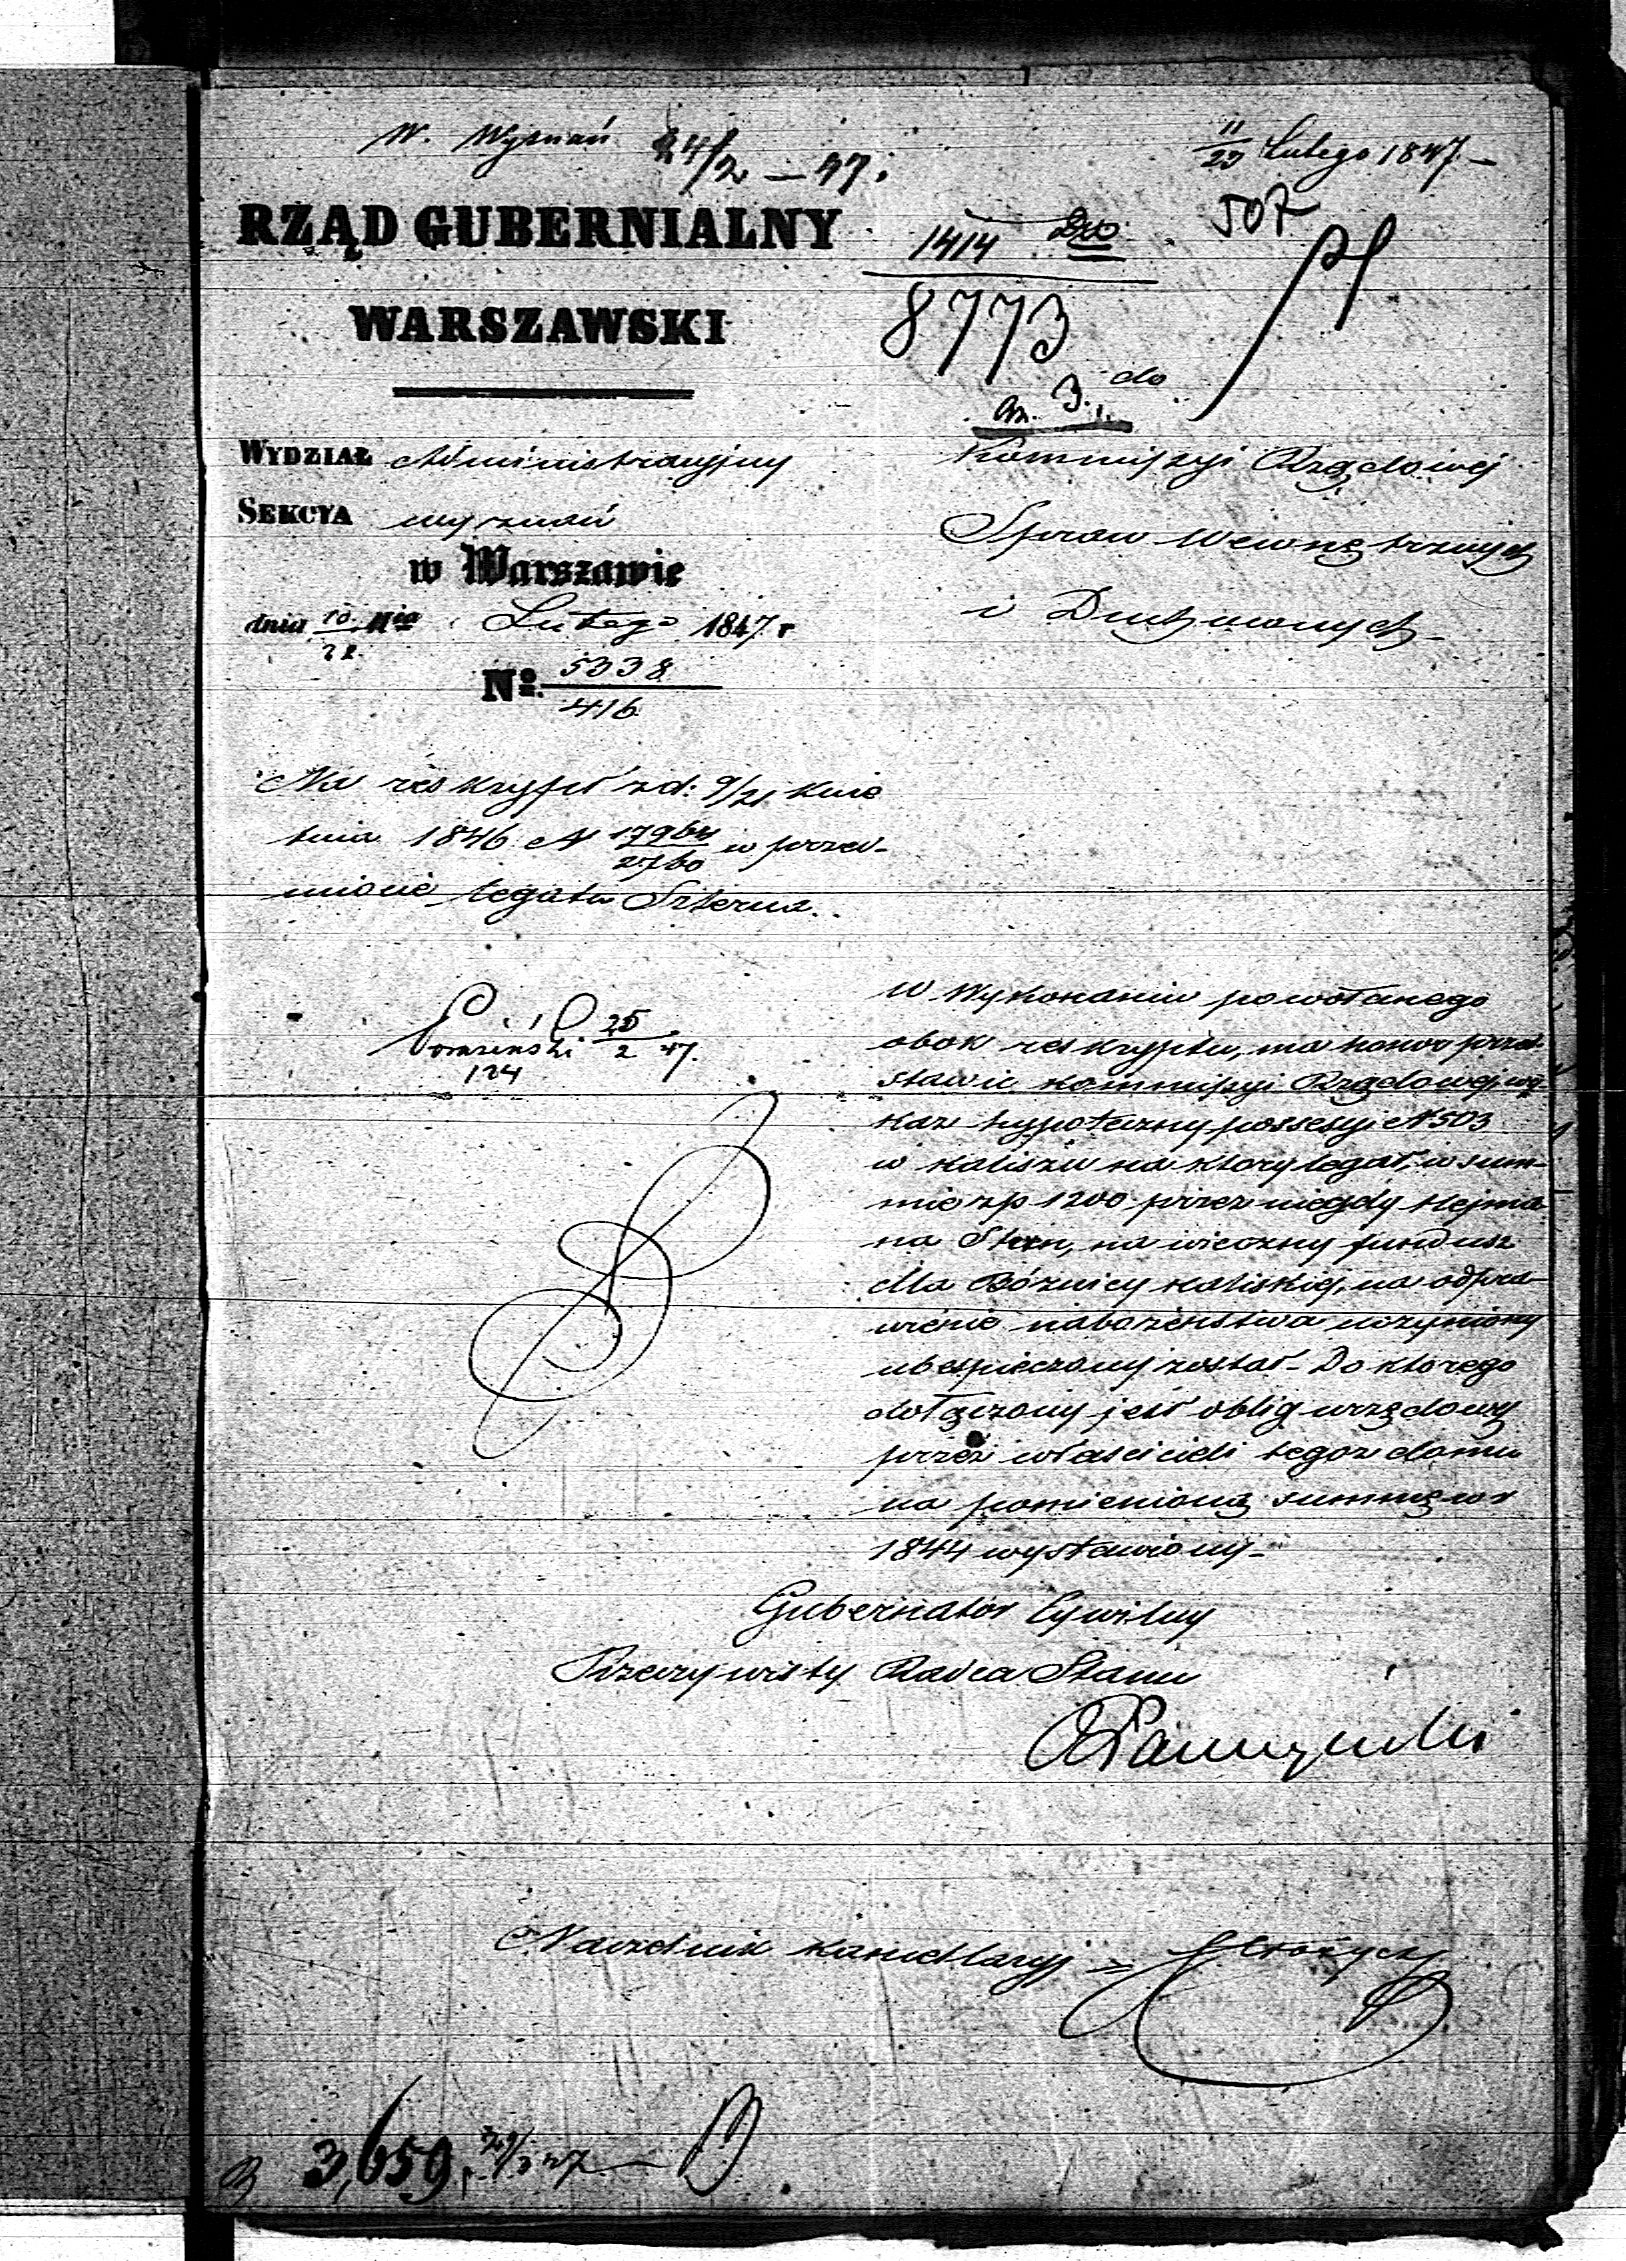 W. Wyznań 24/2 – 47.
11/23 Lutego 1847. –
507
RZĄD GUBERNIALNY
WARSZAWSKI
1414
8773
do
3.
WYDZIAŁ Administracyjny
SEKCYA wyznań
w Warszawie
dnia 10/22 Mca Lutego 1847 r
No. 5338/416
Kommissyi Rządowej
Spraw Wewnętrznych
i Duchownych
Na reskrypt z d: 9/21 kwie
tnia 1846 N 17964/2760 w przed-
miocie legatu Szterna.
25/2 47.
124
W Wykonaniu powołanego
obok reskryptu, ma honor przed-
stawić Kommissyi Rządowej wy-
kaz hypoteczny possesyi N 503
w Kaliszu na ktory legat, w sum-
mie zp 1200 przez niegdy Hejma-
na Stern, na wieczny fundusz
dla Bóżnicy Kaliskiej, na odpra-
wienie nabożeństwa uczyniony
ubespieczony został – Do ktorego
dołączony jest oblig urzędowy
przez właścicieli tegoz domu
na pomienioną summę w r
1844 wystawiony –
Gubernator Cywilny
Rzeczywisty Radca Stanu
Naczelnik Kancellaryj
3,659.